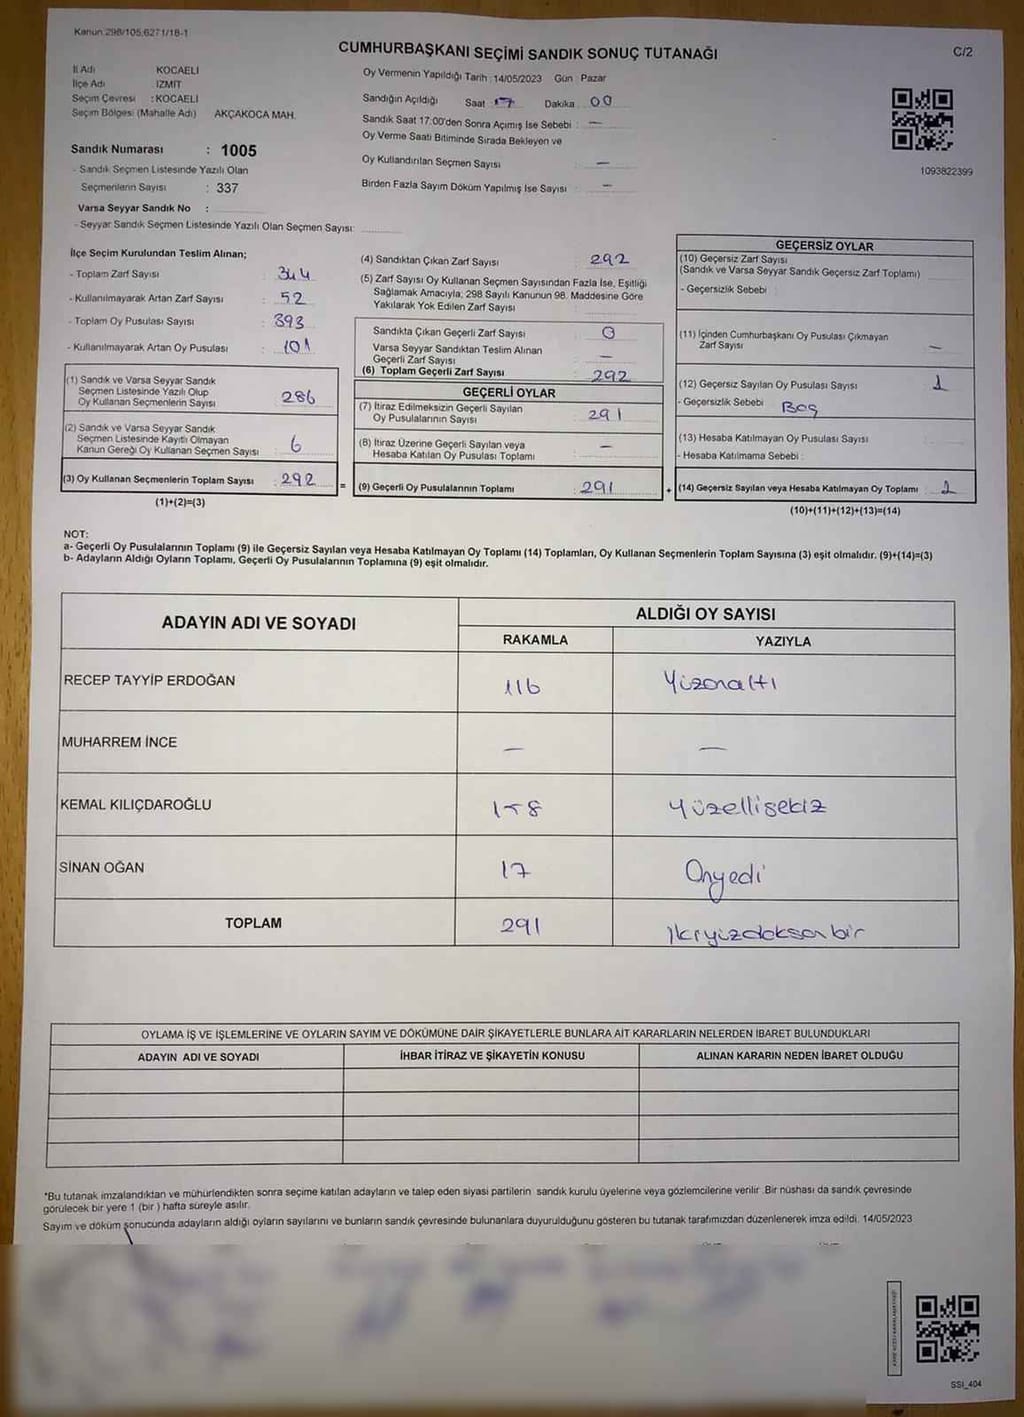 Kanun 298/105,6271/18-1
CUMHURBAŞKANI SEÇİMİ SANDIK SONUÇ TUTANAĞI
C/2
İl Adı KOCAELİ
İlçe Adı İZMİT
Seçim Çevresi : KOCAELİ
Seçim Bölgesi (Mahalle Adı) AKÇAKOCA MAH.
Sandık Numarası : 1005
- Sandık Seçmen Listesinde Yazılı Olan
Seçmenlerin Sayısı : 337
Varsa Seyyar Sandık No :
- Seyyar Sandık Seçmen Listesinde Yazılı Olan Seçmen Sayısı:
Oy Vermenin Yapıldığı Tarih : 14/05/2023 Gün Pazar
Sandığın Açıldığı Saat 17 Dakika 00
Sandık Saat 17:00'den Sonra Açımış İse Sebebi : —
Oy Verme Saati Bitiminde Sırada Bekleyen ve
Oy Kullandırılan Seçmen Sayısı : —
Birden Fazla Sayım Döküm Yapılmış İse Sayısı : —
1093822399
İlçe Seçim Kurulundan Teslim Alınan;
- Toplam Zarf Sayısı : 344
- Kullanılmayarak Artan Zarf Sayısı : 52
- Toplam Oy Pusulası Sayısı : 393
- Kullanılmayarak Artan Oy Pusulası : 101
(1) Sandık ve Varsa Seyyar Sandık
Seçmen Listesinde Yazılı Olup
Oy Kullanan Seçmenlerin Sayısı : 286
(2) Sandık ve Varsa Seyyar Sandık
Seçmen Listesinde Kayıtlı Olmayan
Kanun Gereği Oy Kullanan Seçmen Sayısı : 6
(3) Oy Kullanan Seçmenlerin Toplam Sayısı : 292
(1)+(2)=(3)
(4) Sandıktan Çıkan Zarf Sayısı : 292
(5) Zarf Sayısı Oy Kullanan Seçmen Sayısından Fazla İse, Eşitliği
Sağlamak Amacıyla, 298 Sayılı Kanunun 98. Maddesine Göre
Yakılarak Yok Edilen Zarf Sayısı :
Sandıkta Çıkan Geçerli Zarf Sayısı : 0
Varsa Seyyar Sandıktan Teslim Alınan
Geçerli Zarf Sayısı : —
(6) Toplam Geçerli Zarf Sayısı : 292
GEÇERLİ OYLAR
(7) İtiraz Edilmeksizin Geçerli Sayılan
Oy Pusulalarının Sayısı : 291
(8) İtiraz Üzerine Geçerli Sayılan veya
Hesaba Katılan Oy Pusulası Toplamı : —
= (9) Geçerli Oy Pusulalarının Toplamı : 291
GEÇERSİZ OYLAR
(10) Geçersiz Zarf Sayısı
(Sandık ve Varsa Seyyar Sandık Geçersiz Zarf Toplamı)
- Geçersizlik Sebebi :
(11) İçinden Cumhurbaşkanı Oy Pusulası Çıkmayan
Zarf Sayısı : —
(12) Geçersiz Sayılan Oy Pusulası Sayısı : 1
- Geçersizlik Sebebi : Boş
(13) Hesaba Katılmayan Oy Pusulası Sayısı :
- Hesaba Katılmama Sebebi :
+ (14) Geçersiz Sayılan veya Hesaba Katılmayan Oy Toplamı : 1
(10)+(11)+(12)+(13)=(14)
NOT:
a- Geçerli Oy Pusulalarının Toplamı (9) ile Geçersiz Sayılan veya Hesaba Katılmayan Oy Toplamı (14) Toplamları, Oy Kullanan Seçmenlerin Toplam Sayısına (3) eşit olmalıdır. (9)+(14)=(3)
b- Adayların Aldığı Oyların Toplamı, Geçerli Oy Pusulalarının Toplamına (9) eşit olmalıdır.
ADAYIN ADI VE SOYADI ALDIĞI OY SAYISI
RAKAMLA YAZIYLA
RECEP TAYYİP ERDOĞAN 116 Yüzonaltı
MUHARREM İNCE — —
KEMAL KILIÇDAROĞLU 158 Yüzellisekiz
SİNAN OĞAN 17 Onyedi
TOPLAM 291 İkiyüzdoksanbir
OYLAMA İŞ VE İŞLEMLERİNE VE OYLARIN SAYIM VE DÖKÜMÜNE DAİR ŞİKAYETLERLE BUNLARA AİT KARARLARIN NELERDEN İBARET BULUNDUKLARI
ADAYIN ADI VE SOYADI İHBAR İTİRAZ VE ŞİKAYETİN KONUSU ALINAN KARARIN NEDEN İBARET OLDUĞU
*Bu tutanak imzalandıktan ve mühürlendikten sonra seçime katılan adayların ve talep eden siyasi partilerin sandık kurulu üyelerine veya gözlemcilerine verilir .Bir nüshası da sandık çevresinde
görülecek bir yere 1 (bir ) hafta süreyle asılır.
Sayım ve döküm sonucunda adayların aldığı oyların sayılarını ve bunların sandık çevresinde bulunanlara duyurulduğunu gösteren bu tutanak tarafımızdan düzenlenerek imza edildi. 14/05/2023
SSI_404